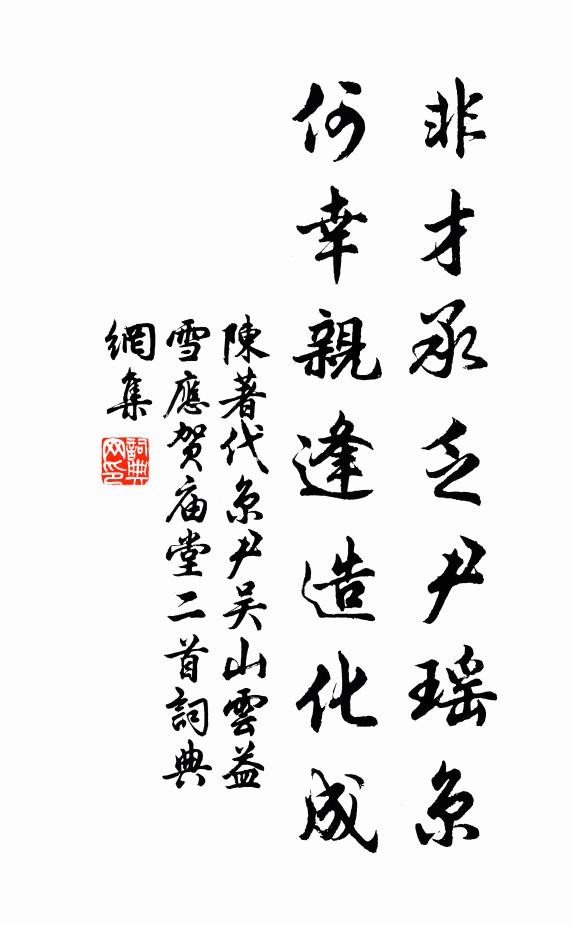 非才承乏尹瑶京
何幸親逢造化成
陳著代京尹吴山雲益
雪應贺庙堂二首詞典
網集
詞典
网印